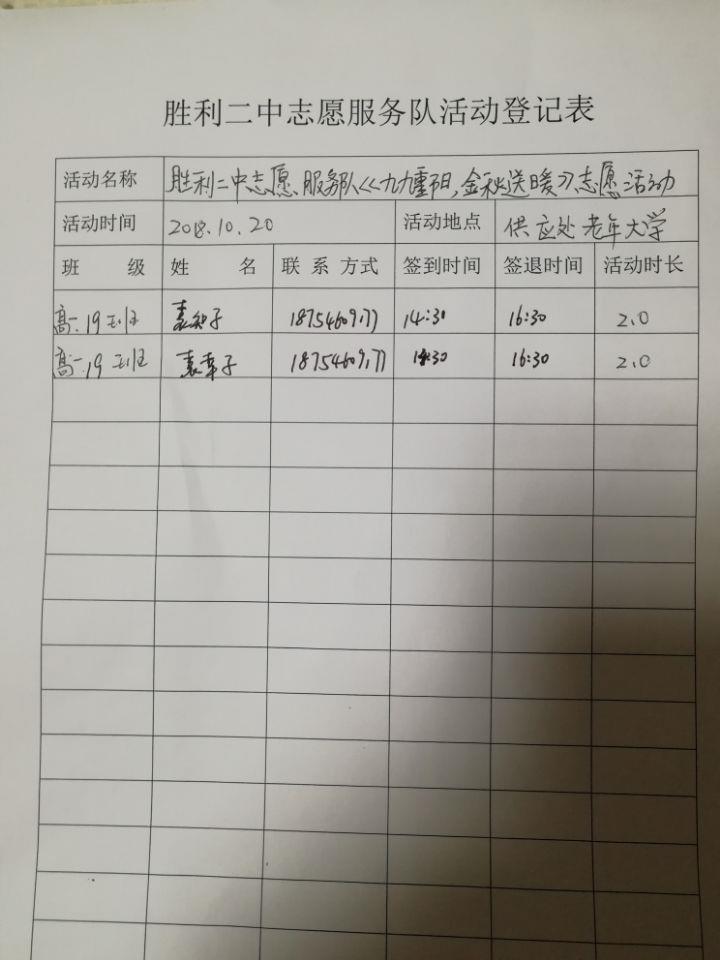 胜利二中志愿服务队活动登记表
活动名称 胜利二中志愿服务队《九九重阳,金秋送暖》志愿活动
活动时间 2018.10.20 活动地点 供应处老年大学
班 级 姓 名 联 系 方式 签到时间 签退时间 活动时长
高一.19班 袁 子 14:30 16:30 2.0
高一.19班 袁 子 14:30 16:30 2.0